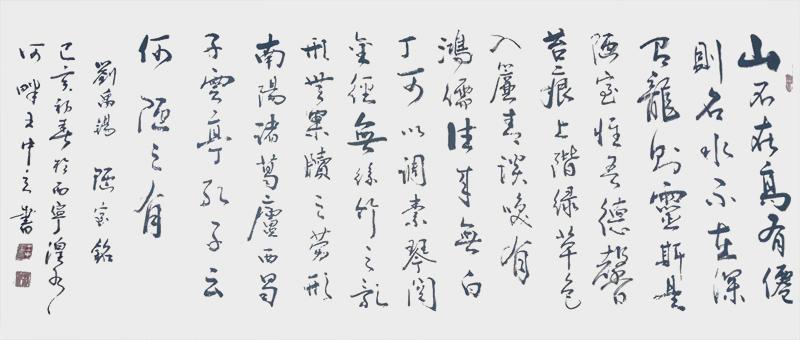 山不在高有僊
則名水不在深
有龍則靈斯是
陋室惟吾德馨
苔痕上階緑草色
入簾青談笑有
鴻儒往来無白
丁可以调素琴閲
金經無絲竹之亂
形無案牘之劳形
南陽諸葛廬西蜀
子雲亭孔子云
何陋之有
劉禹錫 陋室銘
己亥初春於西寧湟水
河畔王中立書